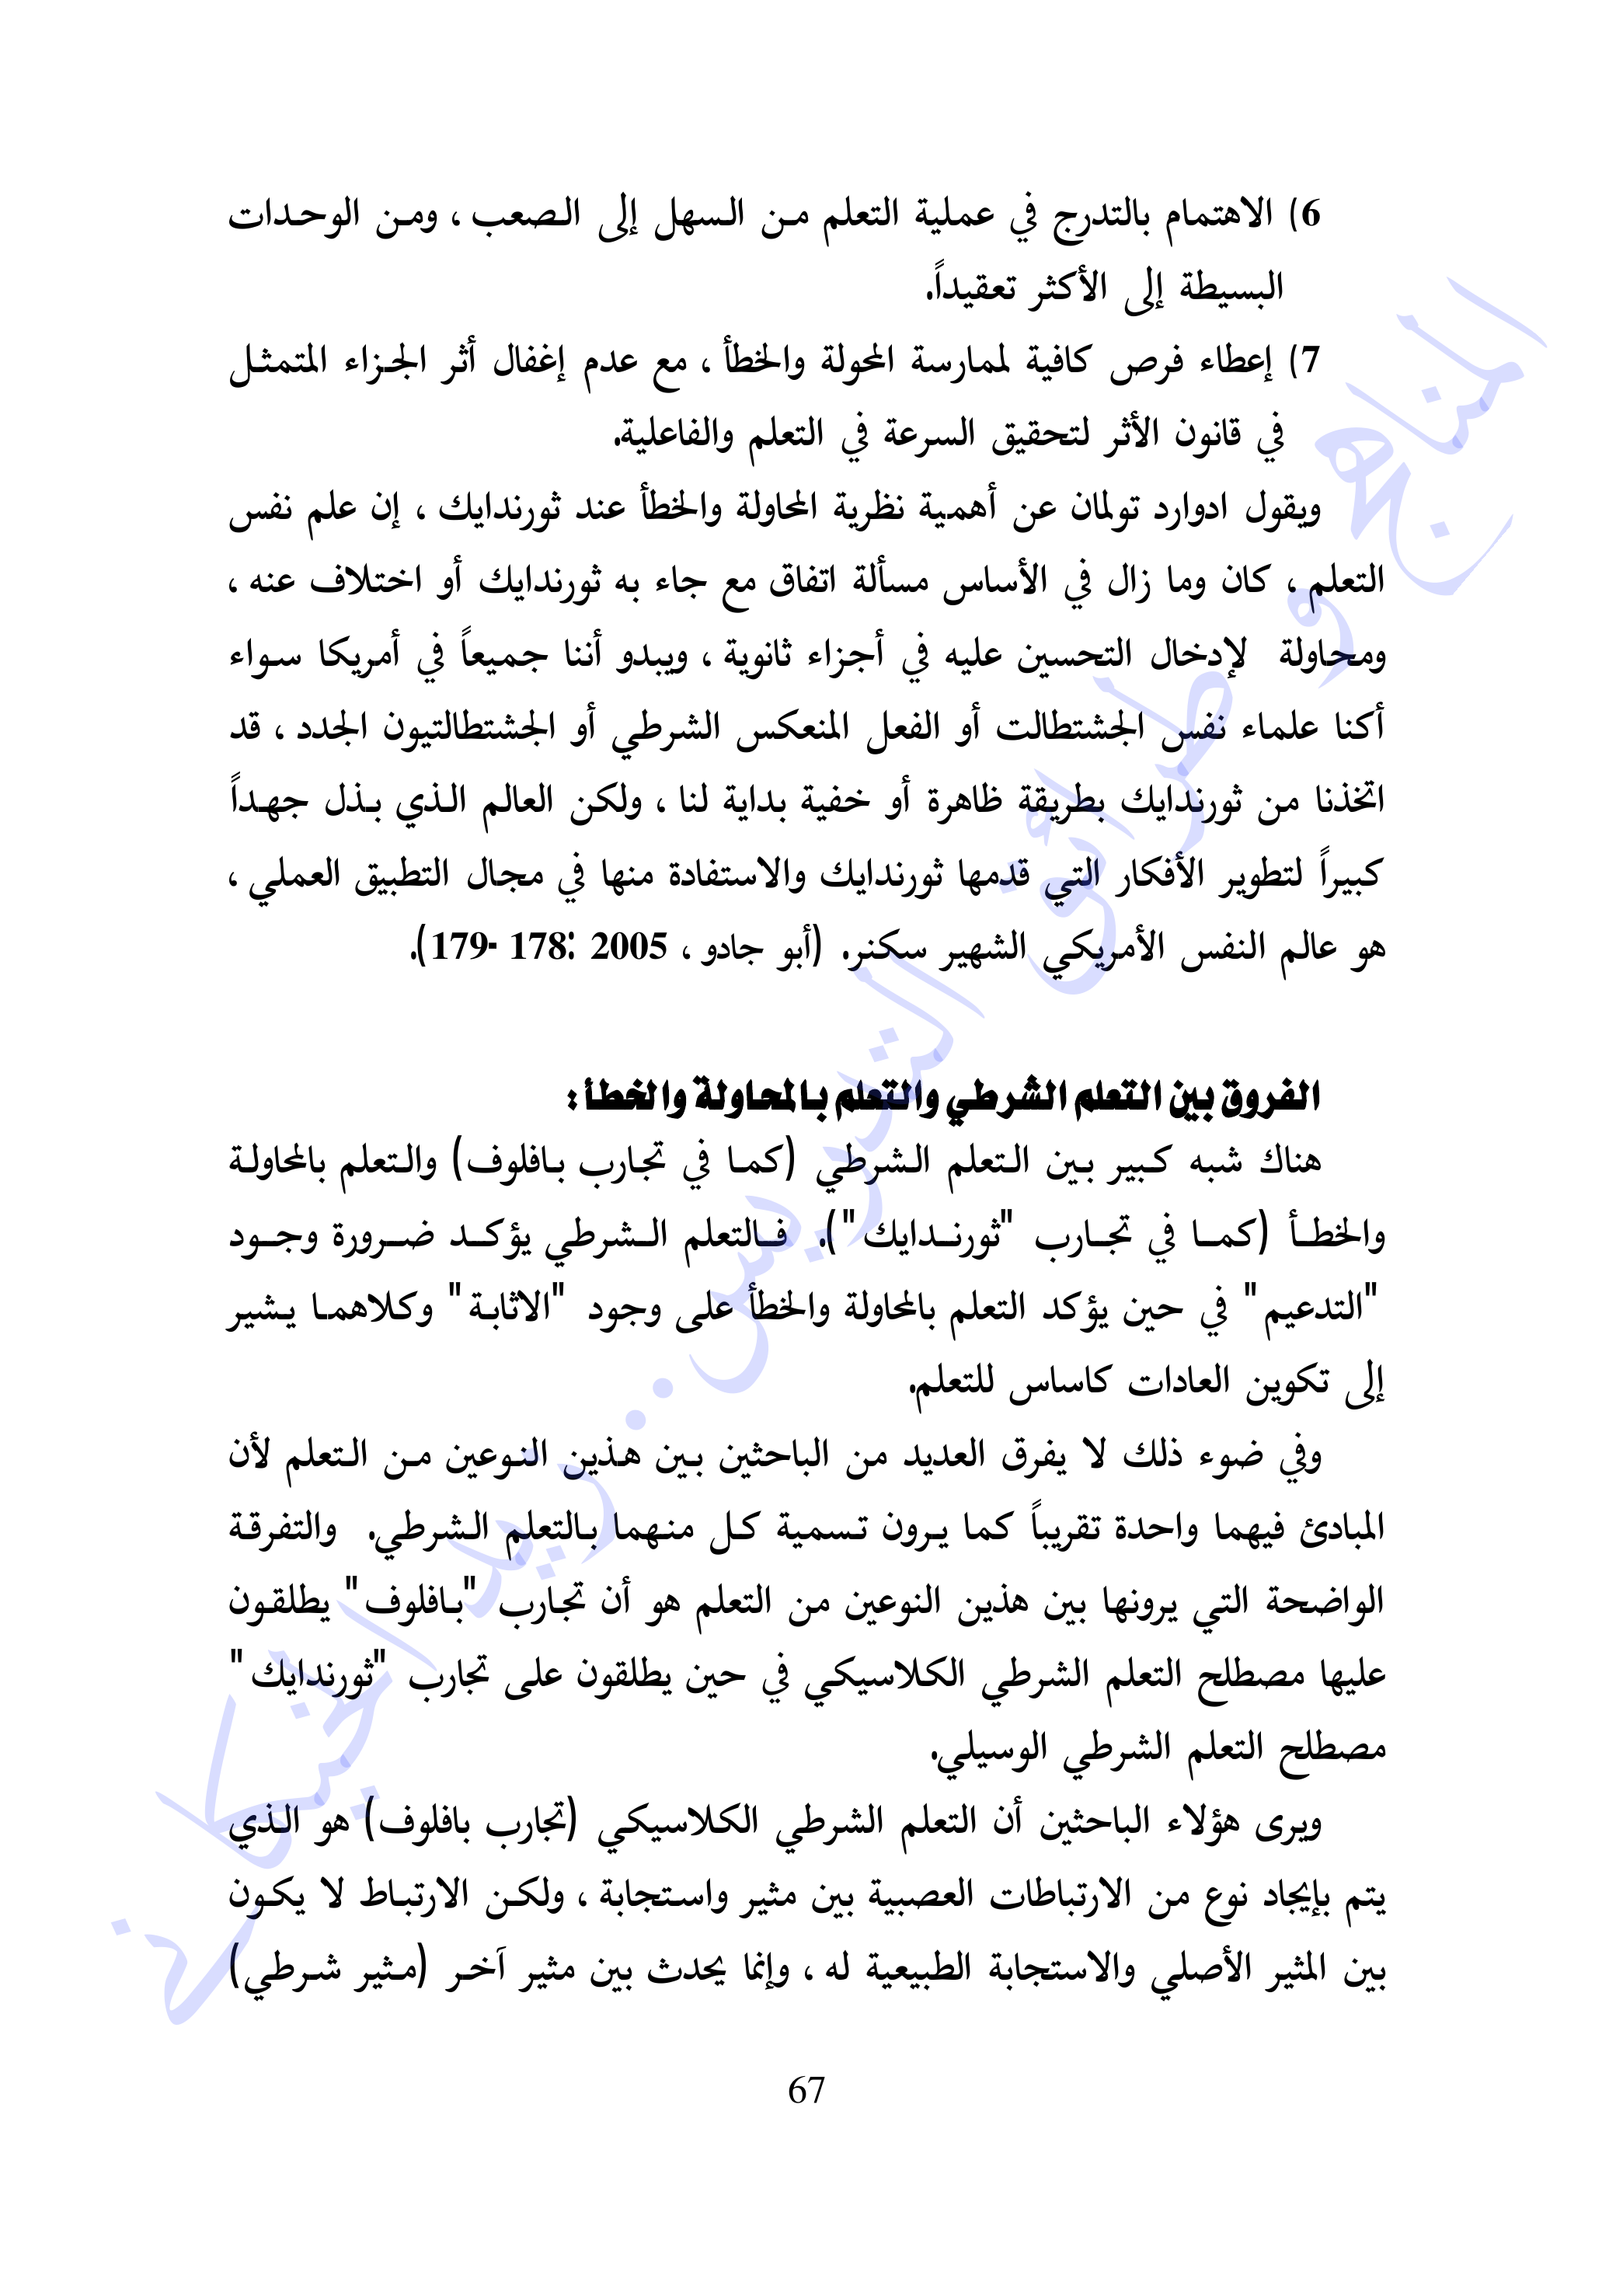 6) الاهتمام بالتدرج في عملية التعلم من السهل إلى الصعب ، ومن الوحدات
البسيطة إلى الأكثر تعقيداً.
7) إعطاء فرص كافية لممارسة المحولة والخطأ ، مع عدم إغفال أثر الجزاء المتمثل
في قانون الأثر لتحقيق السرعة في التعلم والفاعلية.
ويقول ادوارد تولمان عن أهمية نظرية المحاولة والخطأ عند ثورندايك ، إن علم نفس
التعلم ، كان وما زال في الأساس مسألة اتفاق مع جاء به ثورندايك أو اختلاف عنه ،
ومحاولة لإدخال التحسين عليه في أجزاء ثانوية ، ويبدو أننا جميعاً في أمريكا سواء
أكنا علماء نفس الجشتطالت أو الفعل المنعكس الشرطي أو الجشتطالتيون الجدد ، قد
اتخذنا من ثورندايك بطريقة ظاهرة أو خفية بداية لنا ، ولكن العالم الذي بذل جهداً
كبيراً لتطوير الأفكار التي قدمها ثورندايك والاستفادة منها في مجال التطبيق العملي ،
هو عالم النفس الأمريكي الشهير سكنر. (أبو جادو ، 2005 :178 -179).
الفروق بين التعلم الشرطي والتعلم بالمحاولة والخطأ :
هناك شبه كبير بين التعلم الشرطي (كما في تجارب بافلوف) والتعلم بالمحاولة
والخطأ (كما في تجارب "ثورندايك"). فالتعلم الشرطي يؤكد ضرورة وجود
"التدعيم" في حين يؤكد التعلم بالمحاولة والخطأ على وجود "الاثابة" وكلاهما يشير
إلى تكوين العادات كاساس للتعلم.
وفي ضوء ذلك لا يفرق العديد من الباحثين بين هذين النوعين من التعلم لأن
المبادئ فيهما واحدة تقريباً كما يرون تسمية كل منهما بالتعلم الشرطي. والتفرقة
الواضحة التي يرونها بين هذين النوعين من التعلم هو أن تجارب "بافلوف" يطلقون
عليها مصطلح التعلم الشرطي الكلاسيكي في حين يطلقون على تجارب "ثورندايك"
مصطلح التعلم الشرطي الوسيلي.
ويرى هؤلاء الباحثين أن التعلم الشرطي الكلاسيكي (تجارب بافلوف) هو الذي
يتم بإيجاد نوع من الارتباطات العصبية بين مثير واستجابة ، ولكن الارتباط لا يكون
بين المثير الأصلي والاستجابة الطبيعية له ، وإنما يحدث بين مثير آخر (مثير شرطي)
67